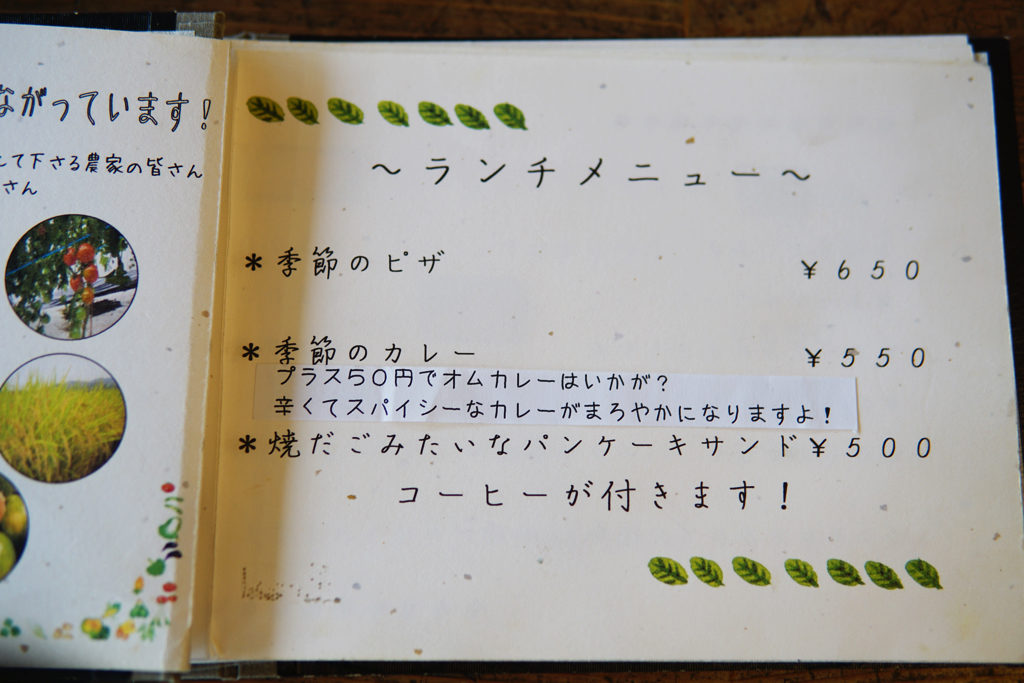 ながっています!
して下さる農家の皆さん
さん
～ランチメニュー～
＊季節のピザ ￥650
＊季節のカレー ￥550
プラス50円でオムカレーはいかが?
辛くてスパイシーなカレーがまろやかになりますよ!
＊焼だごみたいなパンケーキサンド￥500
コーヒーが付きます!